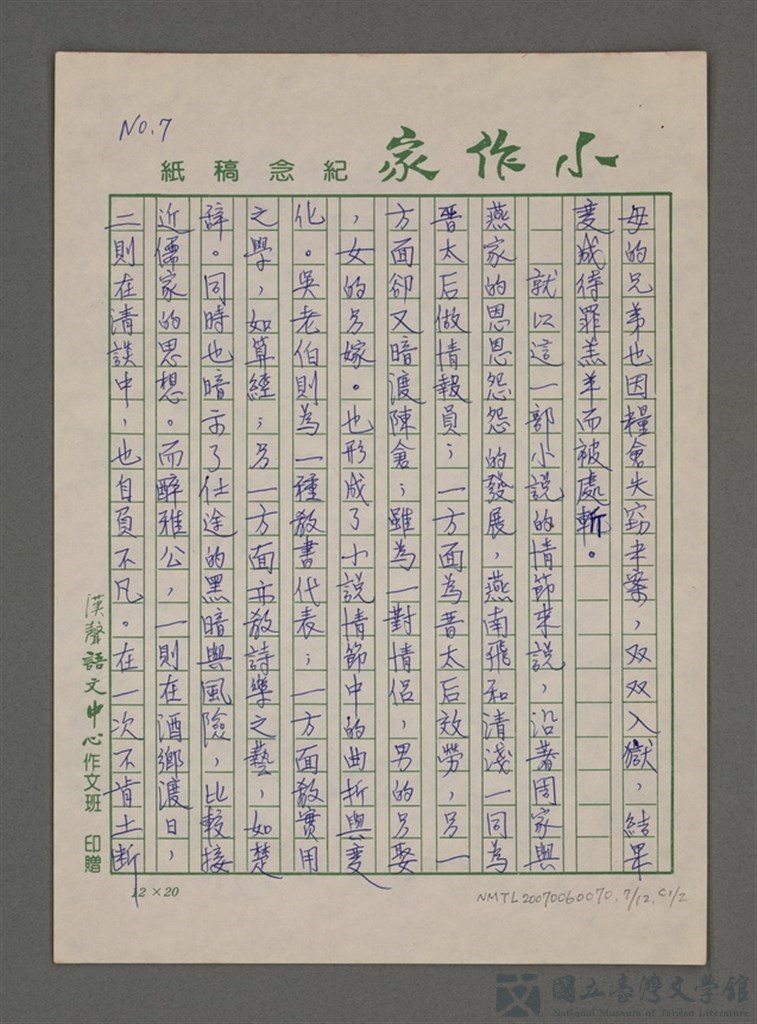 NO.7
小作家
紀念稿紙
母的兄弟也因糧倉失竊末案，双双入獄，結果
變成待罪羔羊而被處斬。
就以這一部小說的情節來說，沿著周家與
燕家的恩恩怨怨的發展，燕南飛和清淺一同為
晋太后做情報員；一方面為晋太后效勞，另一
方面卻又暗渡陳倉；雖為一對情侶，男的另娶
，女的另嫁。也形成了小說情節中的曲折與變
化。吳老伯則為一種教書代表；一方面教實用
之學，如算經；另一方面亦教詩樂之藝，如楚
辞。同時也暗示了仕途的黑暗與風險，比較接
近儒家的思想。而醉雅公，一則在酒鄉渡日，
二則在清談中，也自負不凡。在一次不肯土断
漢聲語文中心作文班 印贈
12×20
NMTL20070060070, 7/12, C1/2
國立臺灣文學館
National Museum of Taiwan Literature